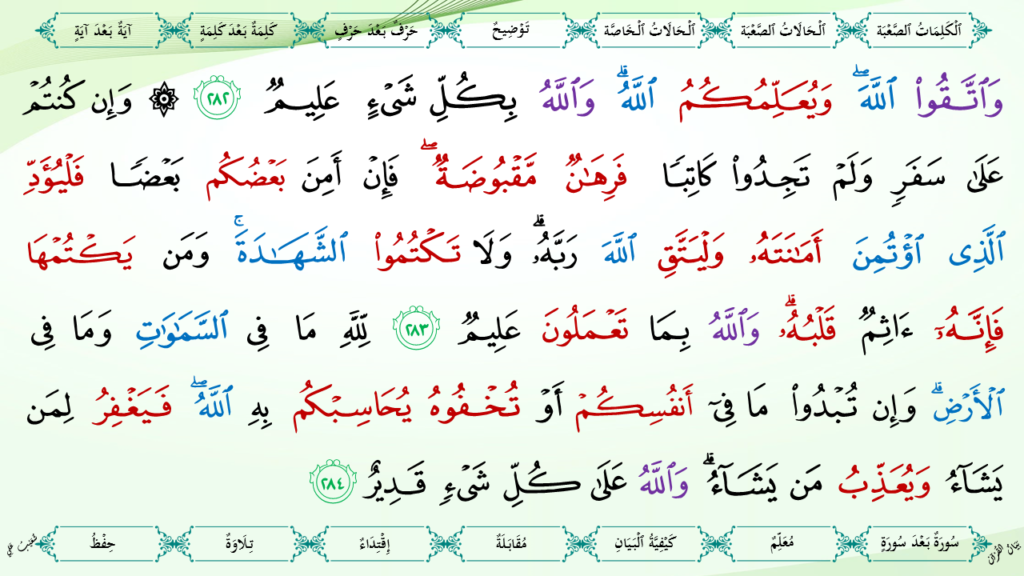 اَلْكَلِمَاتُ الصَّعْبَة
اَلْحَالَاتُ الصَّعْبَة
اَلْحَالَاتُ الْخَاصَّة
تَوْضِيحٌ
حَرْفٌ بَعْدَ حَرْفٍ
كَلِمَةٌ بَعْدَ كَلِمَةٍ
آيَةٌ بَعْدَ آيَةٍ
وَٱتَّقُوا۟ ٱللَّهَۖ وَيُعَلِّمُكُمُ ٱللَّهُۗ وَٱللَّهُ بِكُلِّ شَىْءٍ عَلِيمٌ ٢٨٢ ۞ وَإِن كُنتُمْ
عَلَىٰ سَفَرٍ وَلَمْ تَجِدُوا۟ كَاتِبًا فَرِهَـٰنٌ مَّقْبُوضَةٌۖ فَإِنْ أَمِنَ بَعْضُكُم بَعْضًا فَلْيُؤَدِّ
ٱلَّذِى ٱؤْتُمِنَ أَمَـٰنَتَهُۥ وَلْيَتَّقِ ٱللَّهَ رَبَّهُۥۗ وَلَا تَكْتُمُوا۟ ٱلشَّهَـٰدَةَۚ وَمَن يَكْتُمْهَا
فَإِنَّهُۥٓ ءَاثِمٌ قَلْبُهُۥۗ وَٱللَّهُ بِمَا تَعْمَلُونَ عَلِيمٌ ٢٨٣ لِّلَّهِ مَا فِى ٱلسَّمَـٰوَٰتِ وَمَا فِى
ٱلْأَرْضِۗ وَإِن تُبْدُوا۟ مَا فِىٓ أَنفُسِكُمْ أَوْ تُخْفُوهُ يُحَاسِبْكُم بِهِ ٱللَّهُۖ فَيَغْفِرُ لِمَن
يَشَآءُ وَيُعَذِّبُ مَن يَشَآءُۗ وَٱللَّهُ عَلَىٰ كُلِّ شَىْءٍ قَدِيرٌ ٢٨٤
سُورَةٌ بَعْدَ سُورَةٍ
مُعَلِّمٌ
كَيْفِيَّةُ الْبَيَانِ
مُقَابَلَةٌ
إِقْتِدَاءٌ
تِلَاوَةٌ
حِفْظٌ
بَيَانُ الْقُرْآن